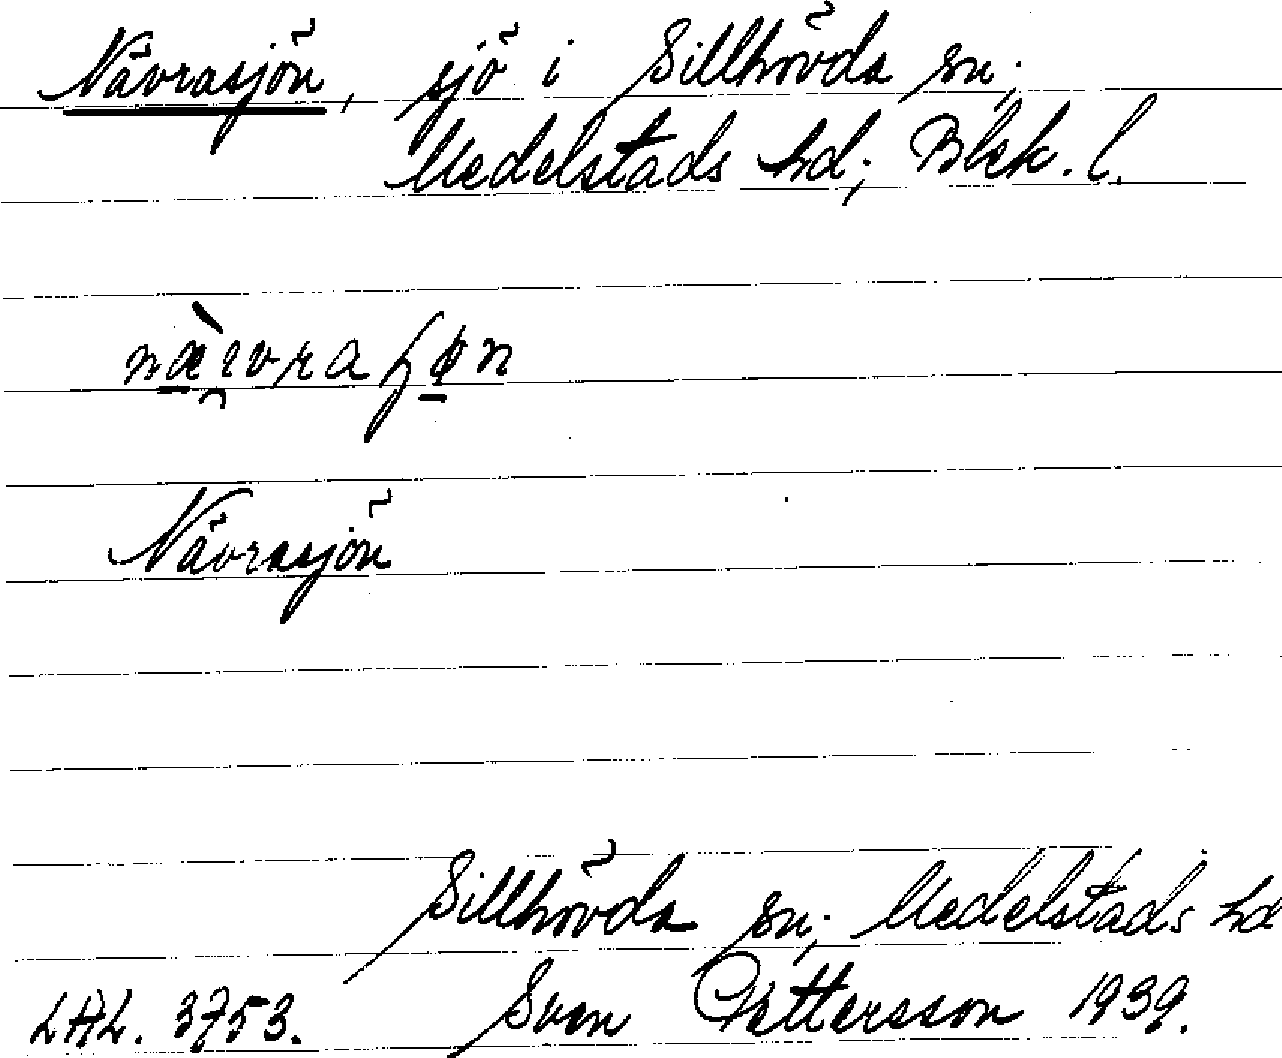 Nävrasjön, sjö i Sillhövda sn;
Medelstads hd; Blek. l.
Nävrasjön
Sillhövda sn; Medelstads hd
LAL. 3753. Sven Pettersson 1939.